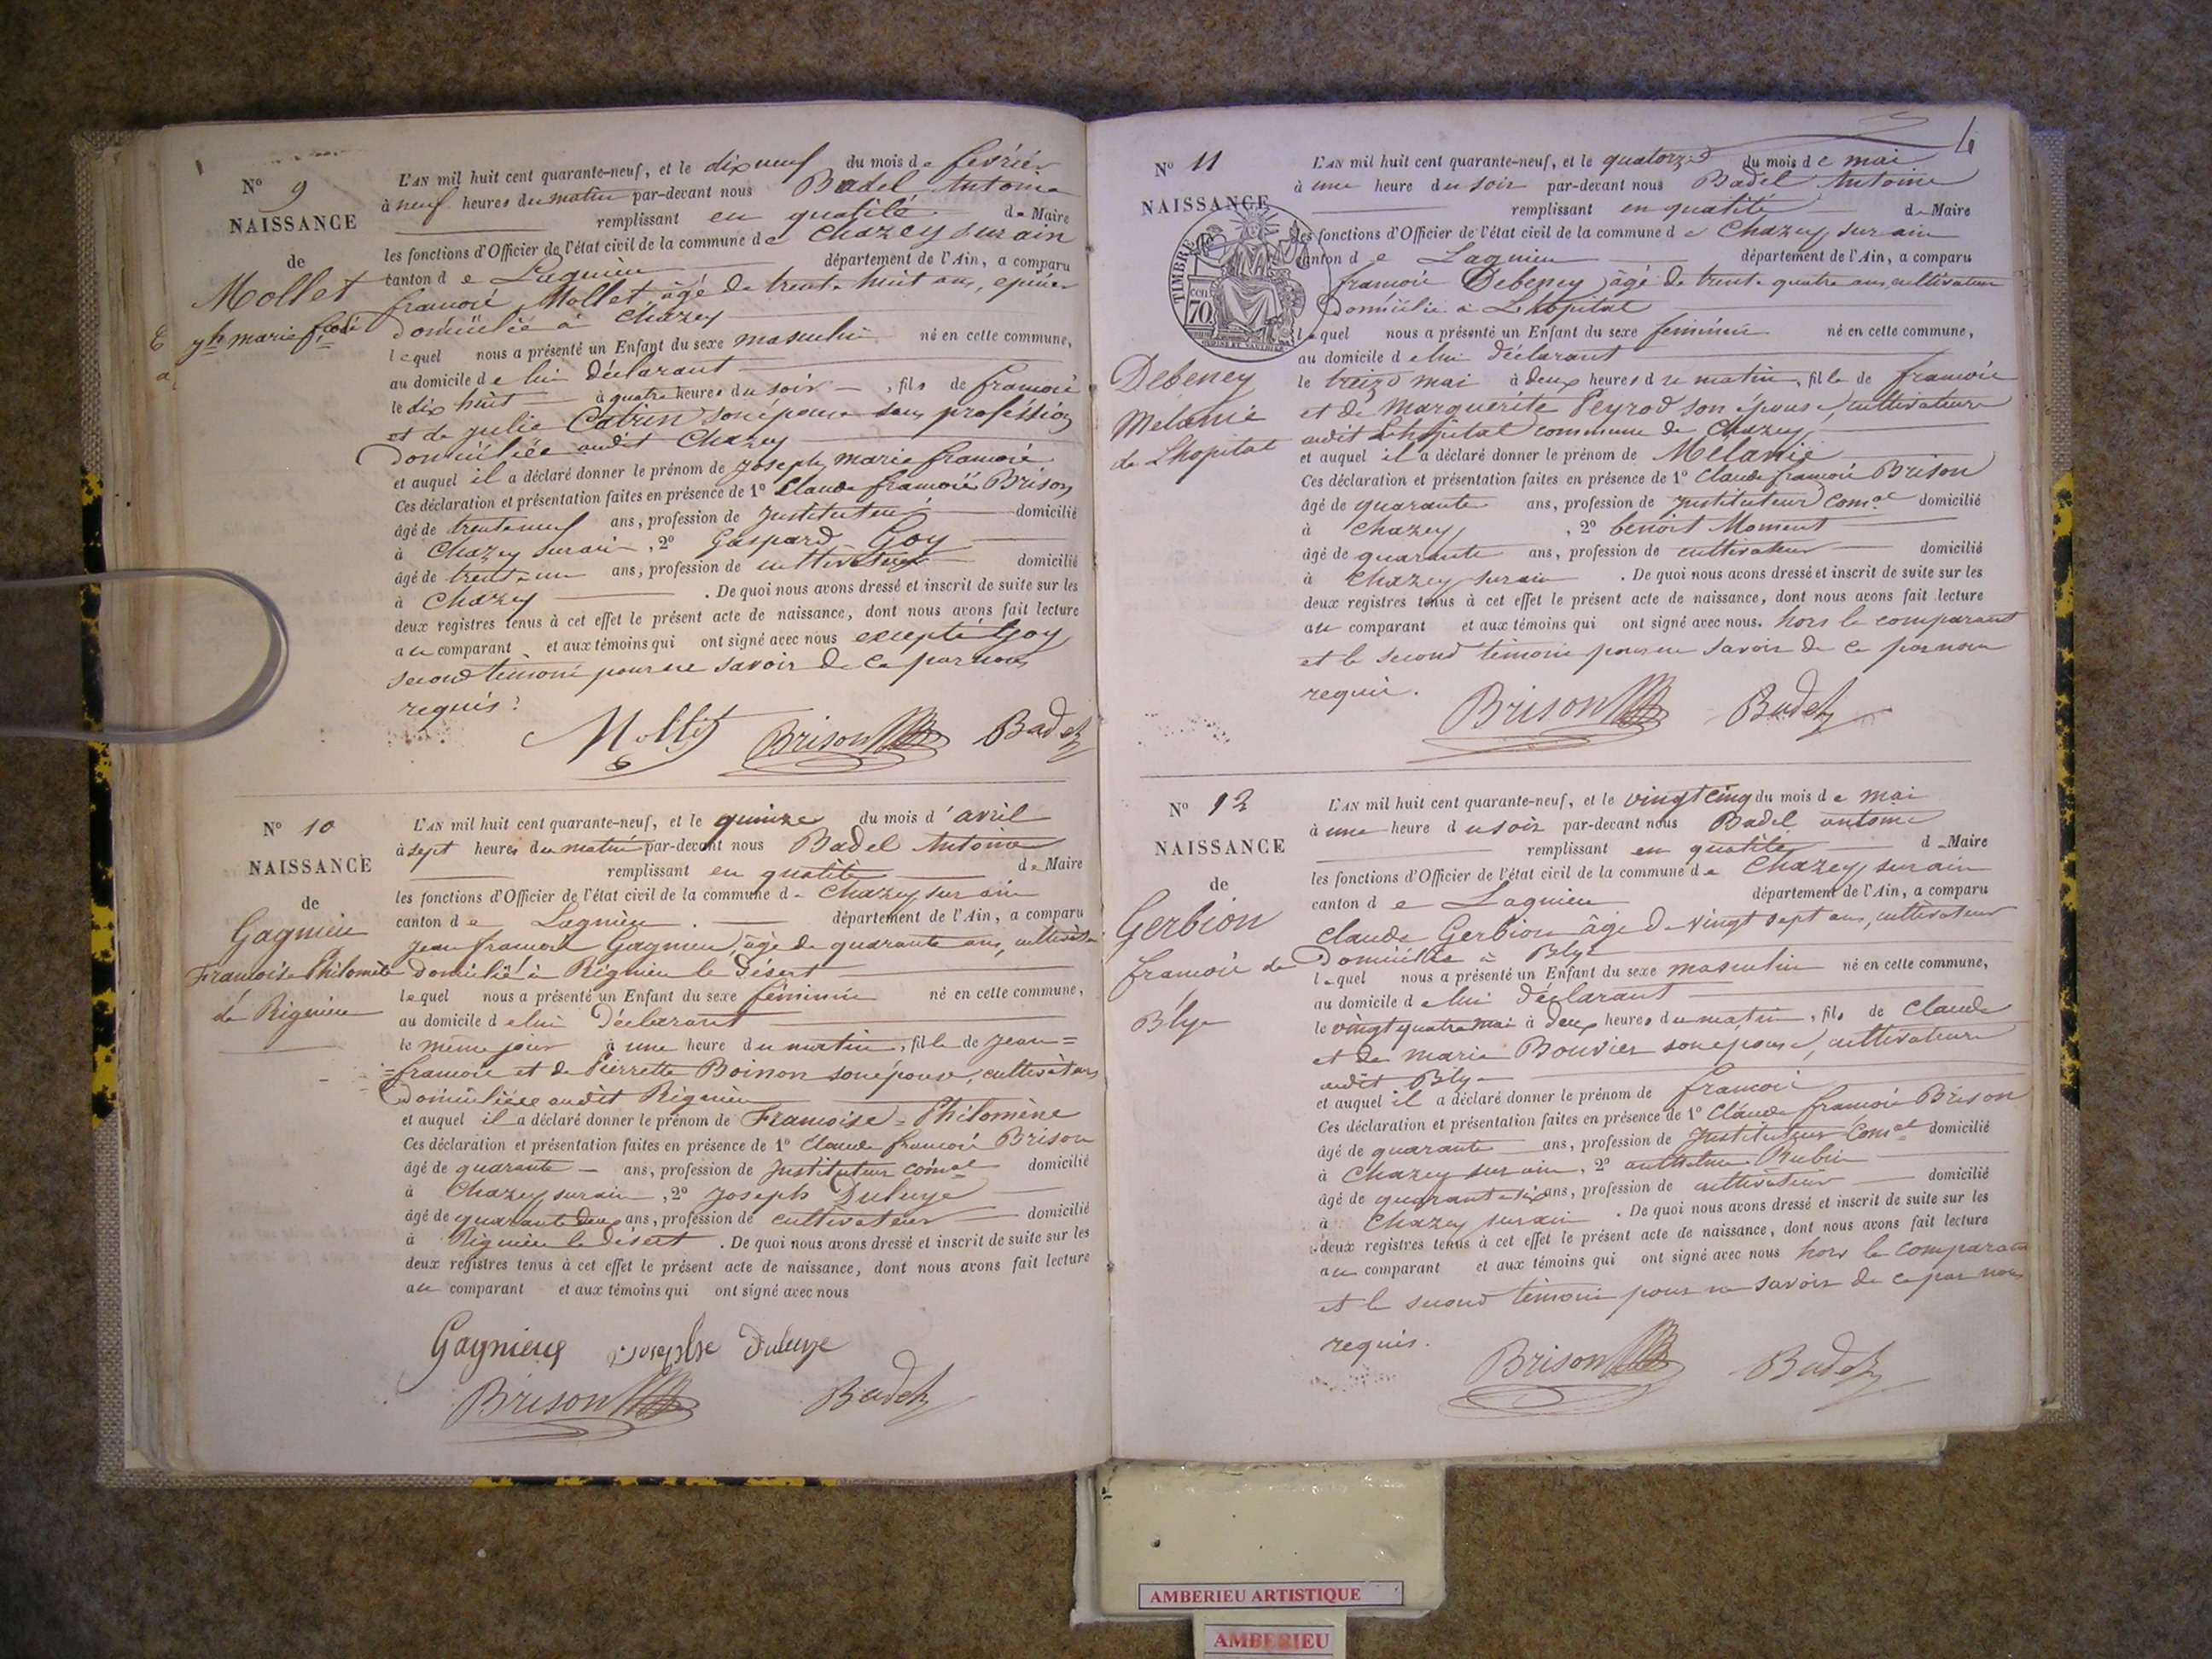 N° 9
NAISSANCE
de
Mollet
jh marie fçois
L'AN mil huit cent quarante-neuf, et le dix neuf du mois de fevrier
à neuf heures du matin par-devant nous Badel Antoine
remplissant en qualité de Maire
les fonctions d'Officier de l'état civil de la commune de Chazey sur ain
canton de Lagnieu département de l'Ain, a comparu
françois Mollet, âgé de trente huit ans, epicier
domicilié à Chazey
lequel nous a présenté un Enfant du sexe masculin né en cette commune,
au domicile de lui déclarant
le dix huit à quatre heures du soir, fils de françois
et de julie Catrin son épouse sans profession
domiciliée audit Chazey
et auquel il a déclaré donner le prénom de joseph marie françois
Ces déclaration et présentation faites en présence de 1° Claude françois Brison
âgé de trente neuf ans, profession de Instituteur domicilié
à Chazey sur ain, 2° Gaspard Goy
âgé de trente un ans, profession de cultivateur domicilié
à Chazey . De quoi nous avons dressé et inscrit de suite sur les
deux registres tenus à cet effet le présent acte de naissance, dont nous avons fait lecture
au comparant et aux témoins qui ont signé avec nous excepté Goy
second témoin pour ne savoir de ce par nous
requis.
Mollet Brison Badel
N° 10
NAISSANCE
de
Gagnieu
Francoise Philomène
de Rignieu
L'AN mil huit cent quarante-neuf, et le quinze du mois d'avril
à sept heures du matin par-devant nous Badel Antoine
remplissant en qualité de Maire
les fonctions d'Officier de l'état civil de la commune de Chazey sur ain
canton de Lagnieu département de l'Ain, a comparu
jean francois Gagnieu, âgé de quarante ans, cultivateur
domicilié à Rignieu le désert
lequel nous a présenté un Enfant du sexe féminin né en cette commune,
au domicile de lui déclarant
le même jour à une heure du matin, fille de jean=
=francois et de Pierrette Boinon son épouse, cultivateurs
domiciliés audit Rignieu
et auquel il a déclaré donner le prénom de Francoise=Philomène
Ces déclaration et présentation faites en présence de 1° Claude francois Brison
âgé de quarante ans, profession de Instituteur comal domicilié
à Chazey sur ain, 2° joseph Duluye
âgé de quarante deux ans, profession de cultivateur domicilié
à Rignieu le désert . De quoi nous avons dressé et inscrit de suite sur les
deux registres tenus à cet effet le présent acte de naissance, dont nous avons fait lecture
au comparant et aux témoins qui ont signé avec nous
Gagnieux joseph Duluye
Brison Badel
4
N° 11
NAISSANCE
TIMBRE
70 cen
Debeney
Melanie
de Lhopital
L'AN mil huit cent quarante-neuf, et le quatorze du mois de mai
à une heure du soir par-devant nous Badel Antoine
remplissant en qualité de Maire
les fonctions d'Officier de l'état civil de la commune de Chazey sur ain
canton de Lagnieu département de l'Ain, a comparu
francois Debeney, âgé de trente quatre ans, cultivateur
domicilié à Lhopital
lequel nous a présenté un Enfant du sexe féminin né en cette commune,
au domicile de lui déclarant
le treize mai à deux heures du matin, fille de francois
et de Marguerite Peyrod son épouse, cultivateurs
audit Lhôpital commune de Chazey
et auquel il a déclaré donner le prénom de Mélanie
Ces déclaration et présentation faites en présence de 1° Claude francois Brison
âgé de quarante ans, profession de Instituteur Comal domicilié
à Chazey, 2° benoit Moment
âgé de quarante ans, profession de cultivateur domicilié
à Chazey sur ain . De quoi nous avons dressé et inscrit de suite sur les
deux registres tenus à cet effet le présent acte de naissance, dont nous avons fait lecture
au comparant et aux témoins qui ont signé avec nous. hors le comparant
et le second témoin pour ne savoir de ce par nous
requis.
Brison Badel
N° 12
NAISSANCE
de
Gerbion
francois de
Blye
L'AN mil huit cent quarante-neuf, et le vingt cinq du mois de mai
à une heure du soir par-devant nous Badel antoine
remplissant en qualité de Maire
les fonctions d'Officier de l'état civil de la commune de Chazey sur ain
canton de Lagnieu département de l'Ain, a comparu
claude Gerbion âgé de vingt sept ans, cultivateur
domicilié à Blye
lequel nous a présenté un Enfant du sexe masculin né en cette commune,
au domicile de lui déclarant
le vingt quatre mai à deux heures du matin, fils de Claude
et de marie Bouvier son épouse, cultivateurs
audit Blye
et auquel il a déclaré donner le prénom de francois
Ces déclaration et présentation faites en présence de 1° Claude francois Brison
âgé de quarante ans, profession de Instituteur Comal domicilié
à Chazey sur ain, 2° Rubin
âgé de quarante six ans, profession de cultivateur domicilié
à Chazey sur ain . De quoi nous avons dressé et inscrit de suite sur les
deux registres tenus à cet effet le présent acte de naissance, dont nous avons fait lecture
au comparant et aux témoins qui ont signé avec nous hors le comparant
et le second témoin pour ne savoir de ce par nous
requis.
Brison Badel
AMBERIEU ARTISTIQUE
AMBERIEU